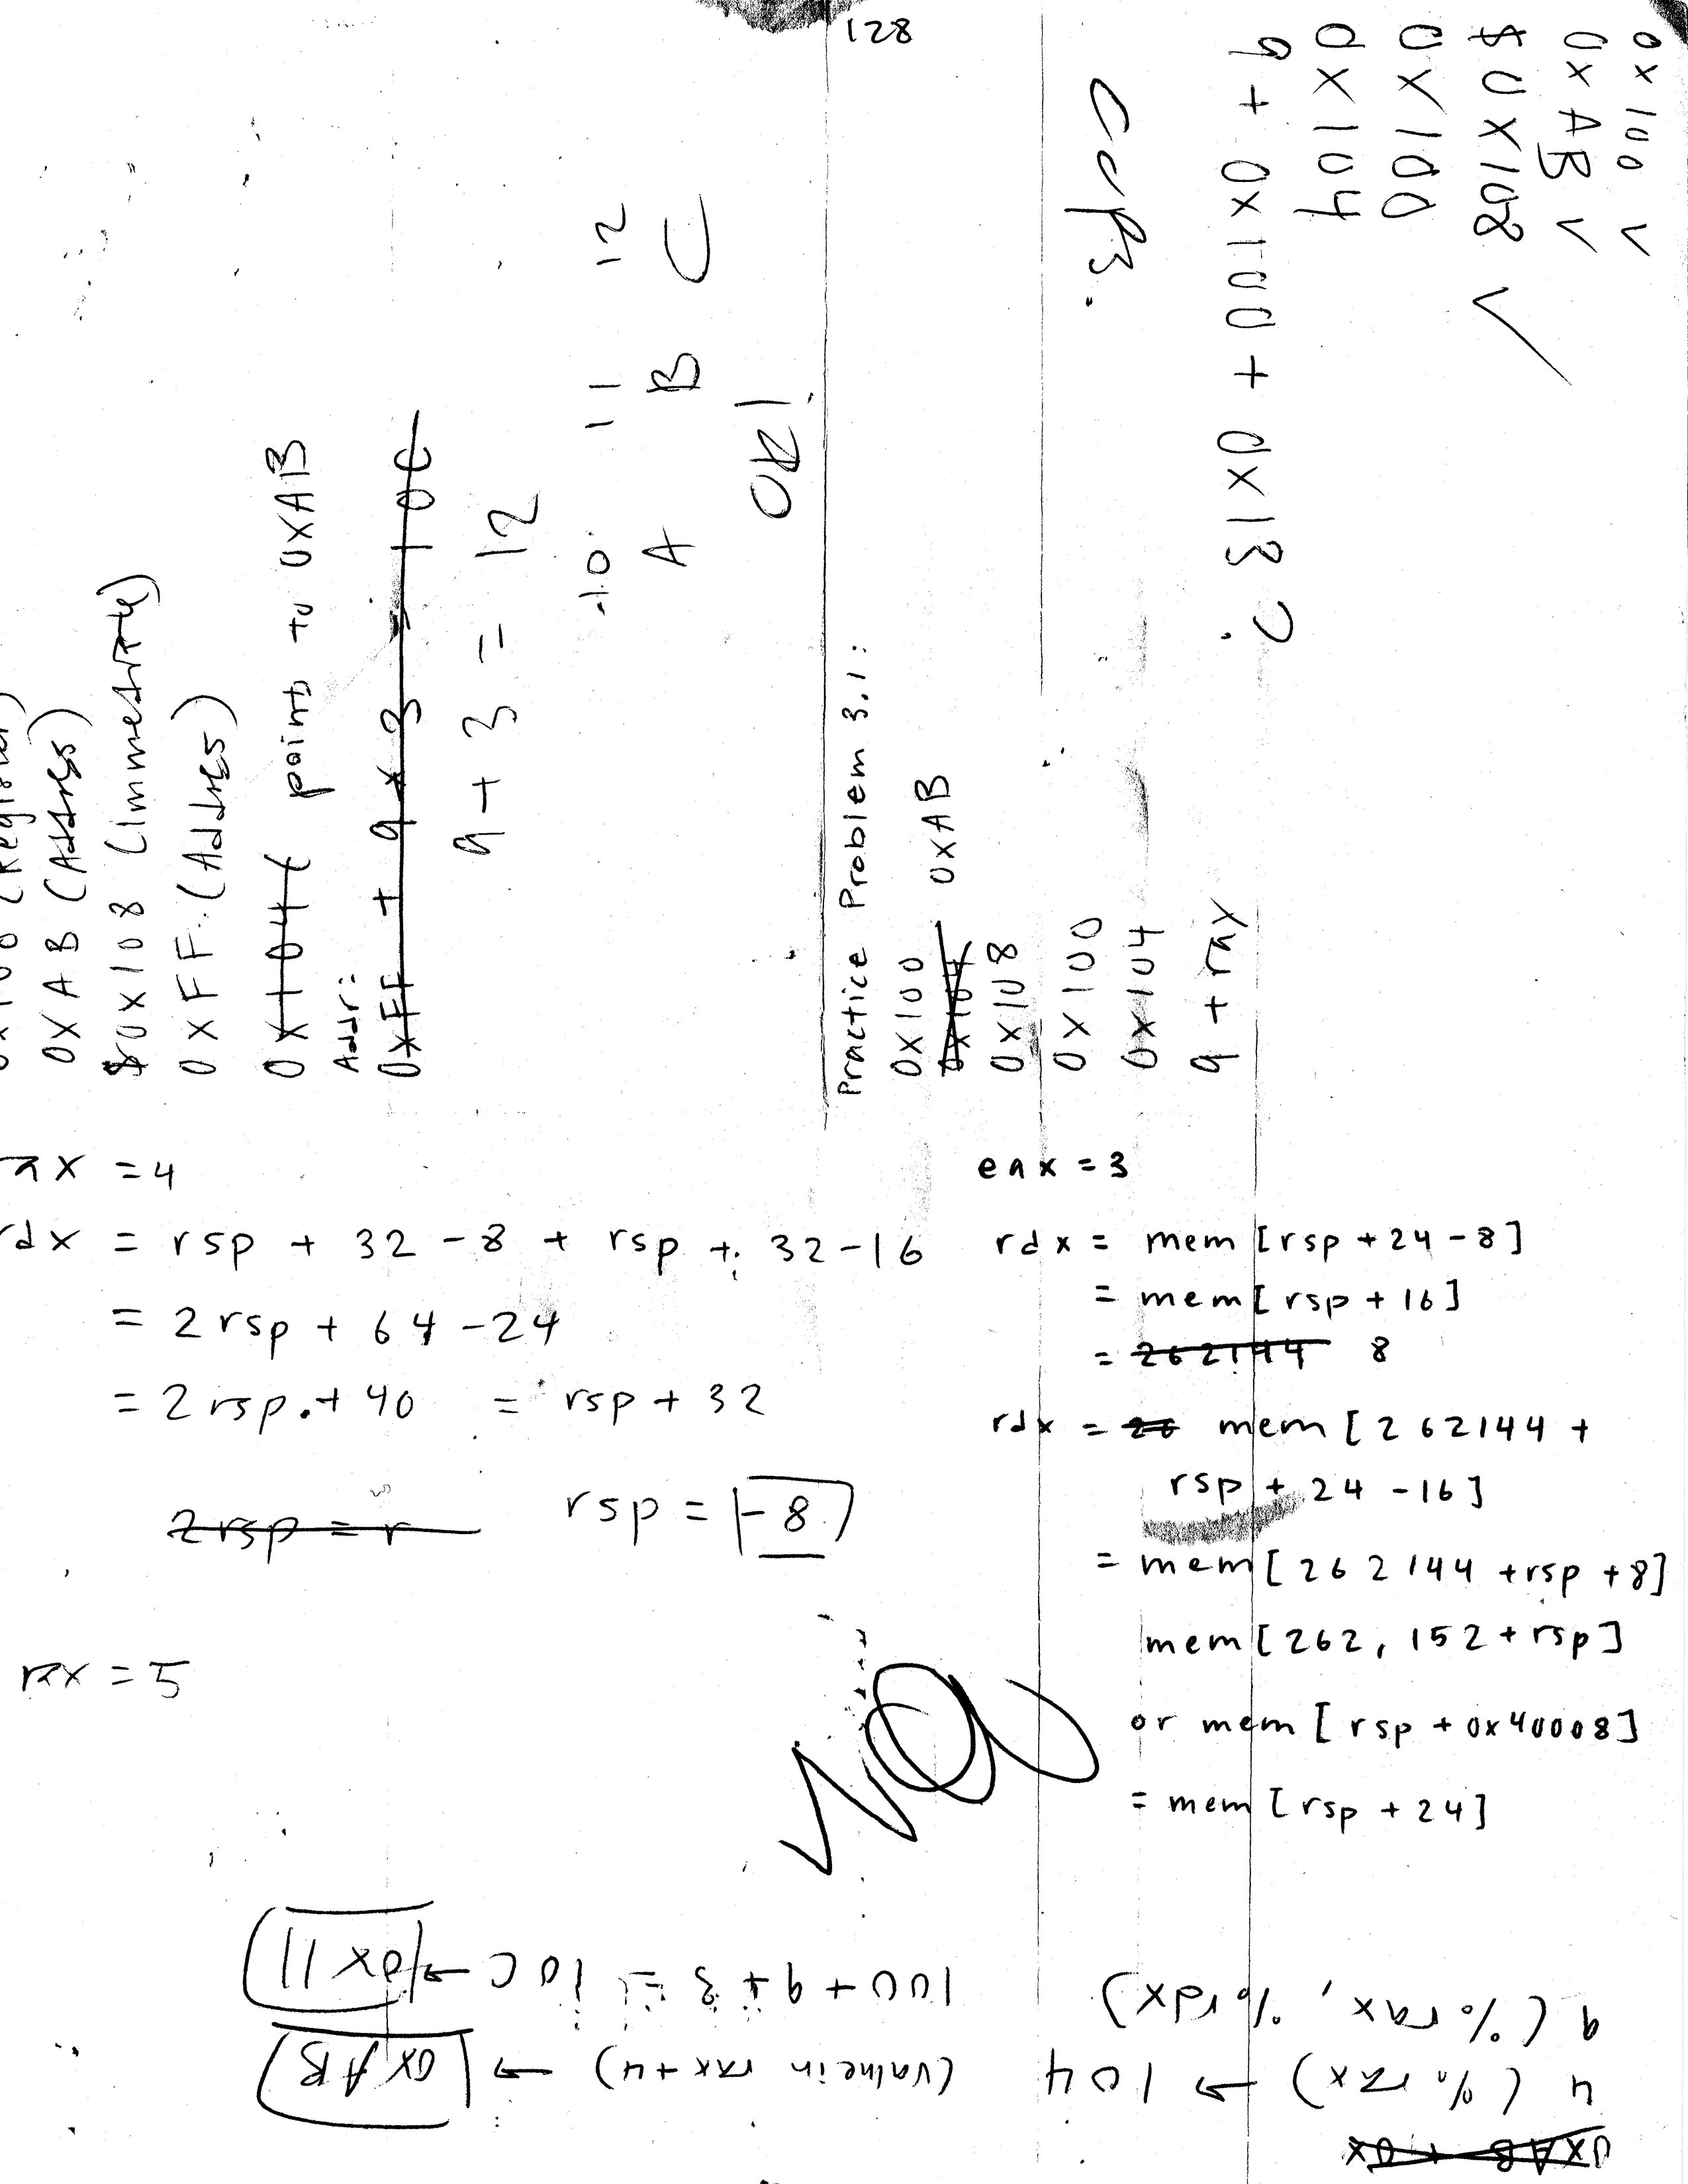 128
0x100 ✓
0xAB ✓
$0x108 ✓
0x100
0x104
9 + 0x100 + 0x13 ?
0x100 (Register)
0xAB (Address)
$0x108 (Immediate)
0xFF (Address)
0x104 ( points to 0xAB
Addr:
0xFF + 9 + 3 = 10C
9 + 3 = 12
10 11 12
A B C
OR1
Practice Problem 3.1:
0x100
0x104 0xAB
0x108
0x100
0x104
9 + rax
rax = 4
rdx = rsp + 32 - 8 + rsp + 32 - 16
= 2 rsp + 64 - 24
= 2 rsp + 40 = rsp + 32
2rsp = r rsp = -8
rax = 5
eax = 3
rdx = mem [rsp + 24 - 8]
= mem [rsp + 16]
= 262144 8
rdx = 26 mem [262144 +
rsp + 24 - 16]
= mem [262144 + rsp + 8]
mem [262,152 + rsp]
or mem [rsp + 0x40008]
= mem [rsp + 24]
0xAB + 0x
4 (%rax) → 104 (value in rax + 4) → 0xAB
9 (%rax, %rdx) 100 + 9 + 3 = 10C → 0x11